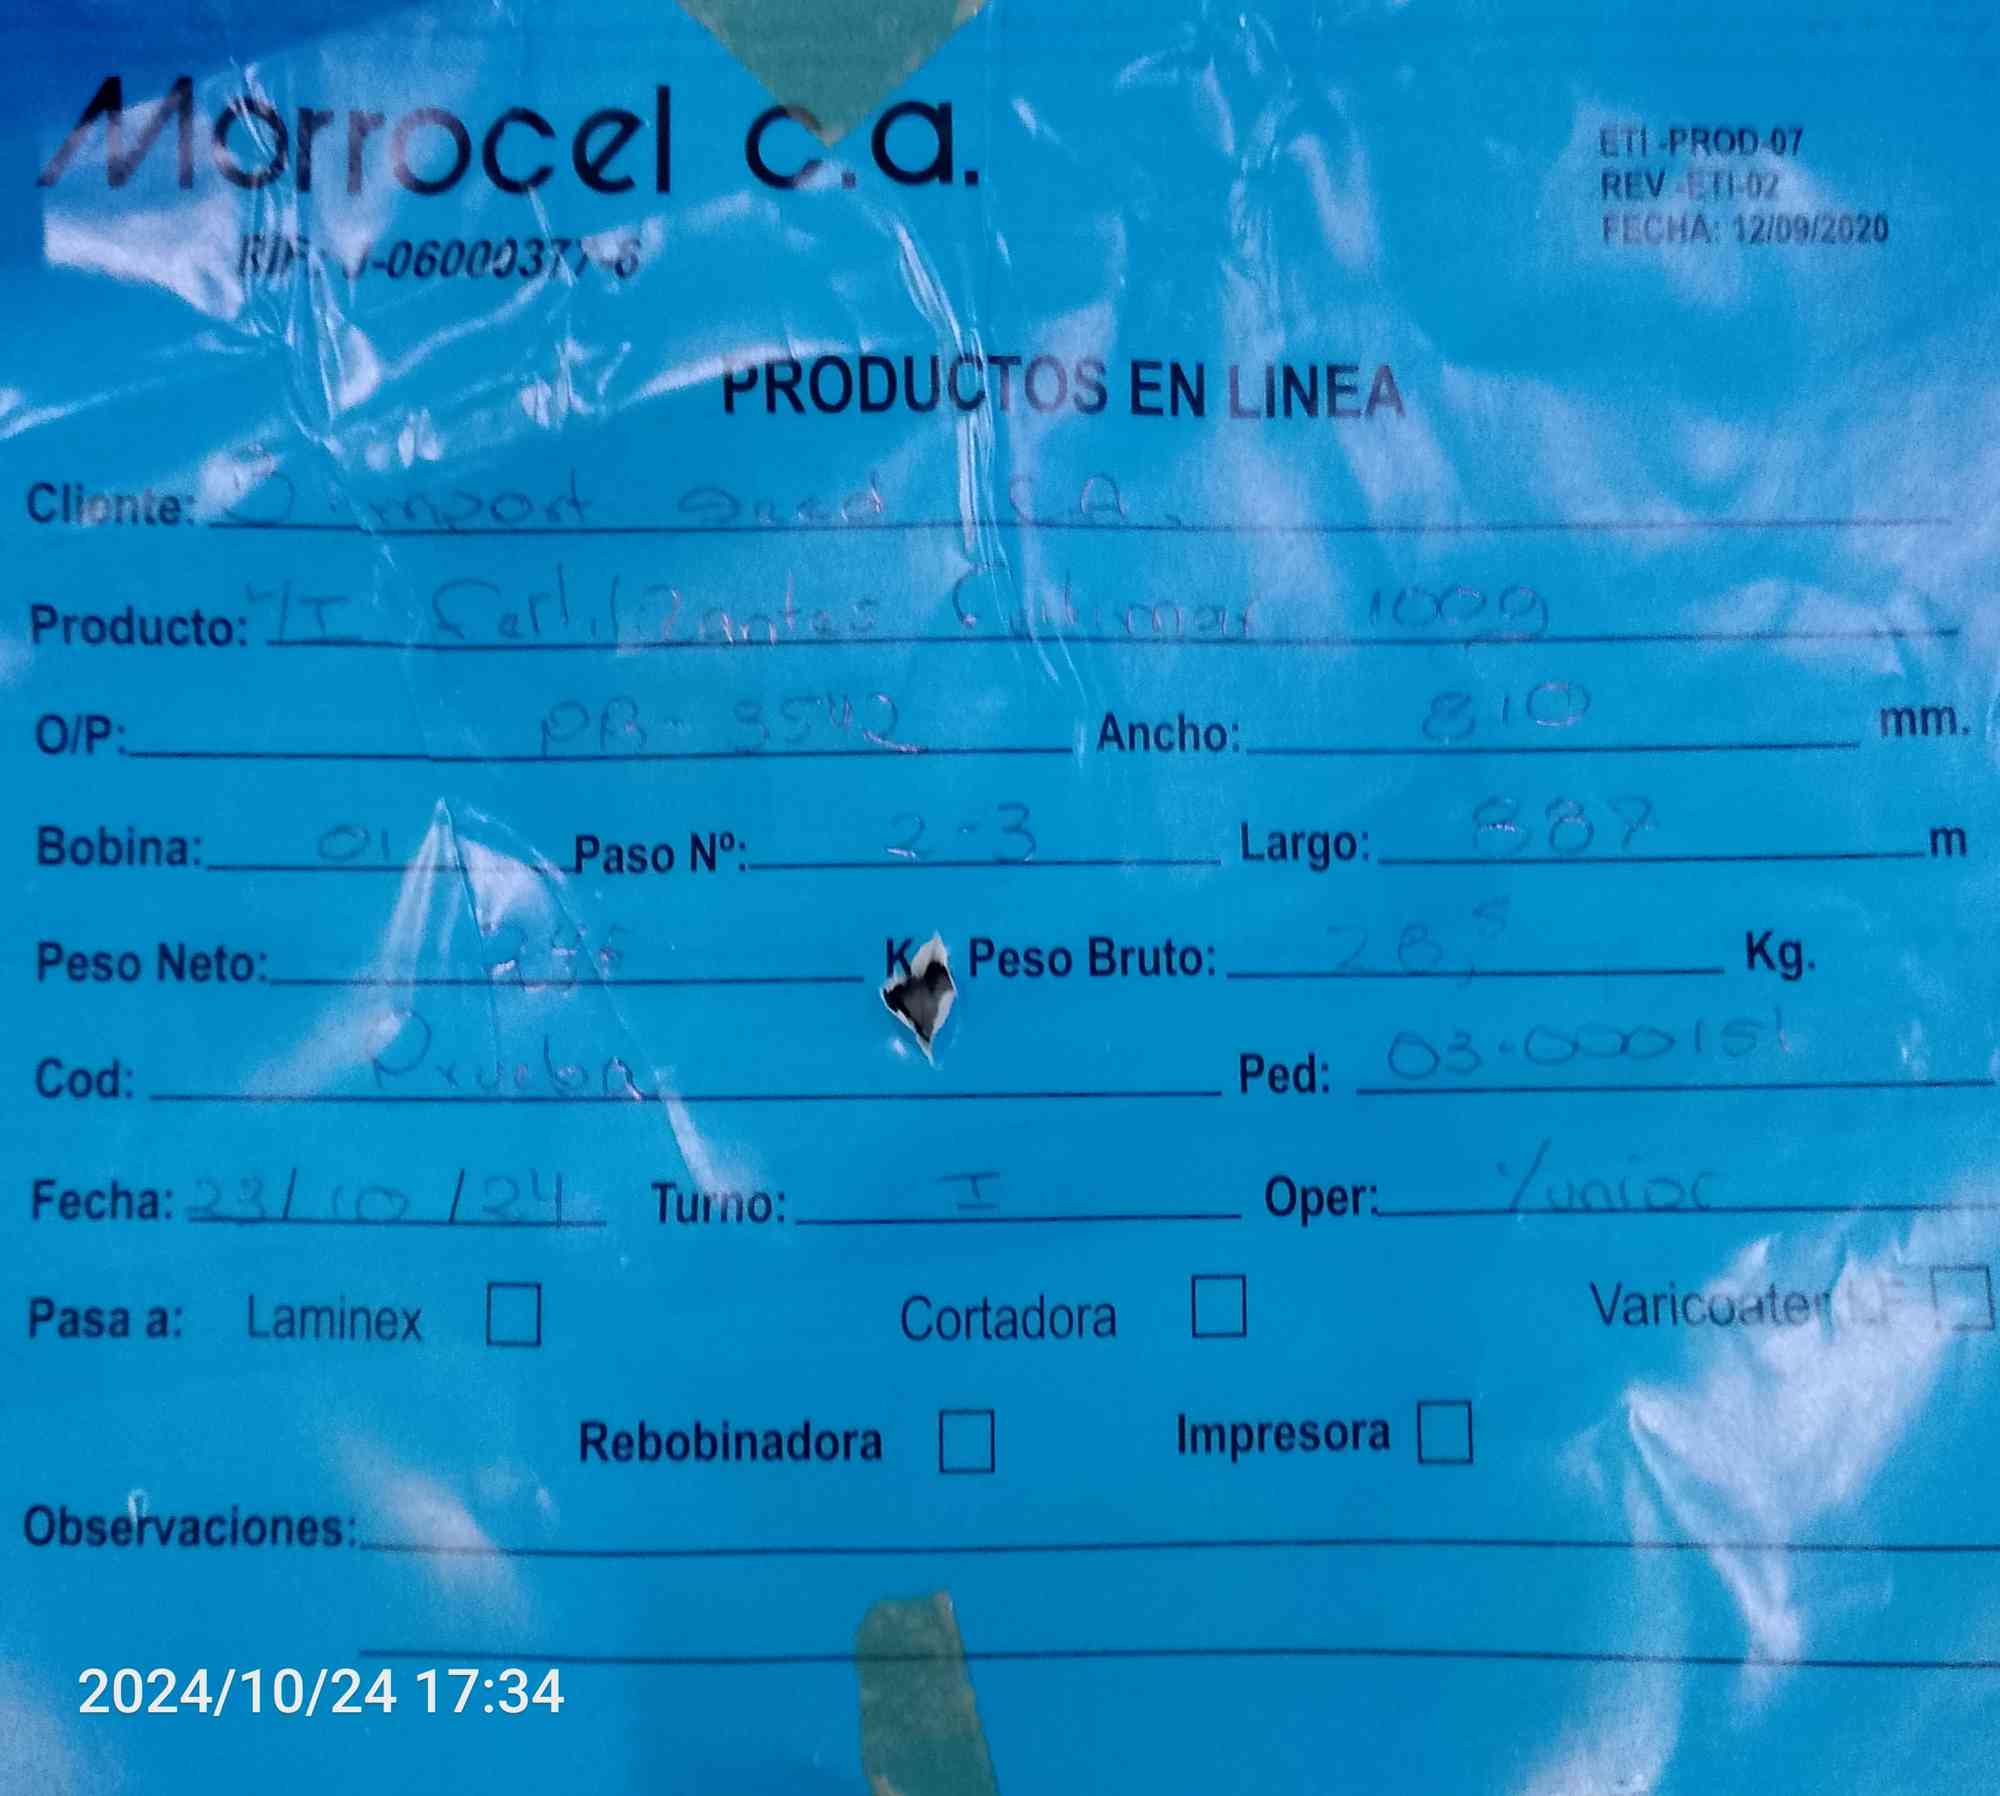 Morrocel c.a.
RIF: J-06000377-6
ETI-PROD-07
REV-ETI-02
FECHA: 12/09/2020
PRODUCTOS EN LINEA
Cliente: import C.A.
Producto: Fertilizantes 100g
O/P: PB-3542 Ancho: 810 mm.
Bobina: 01 Paso Nº: 2-3 Largo: 887 m
Peso Neto: K Peso Bruto: 28,5 Kg.
Cod: Prueba Ped: 03-000151
Fecha: 23/10/24 Turno: I Oper: Yunior
Pasa a: Laminex Cortadora Varicoater
Rebobinadora Impresora
Observaciones:
2024/10/24 17:34